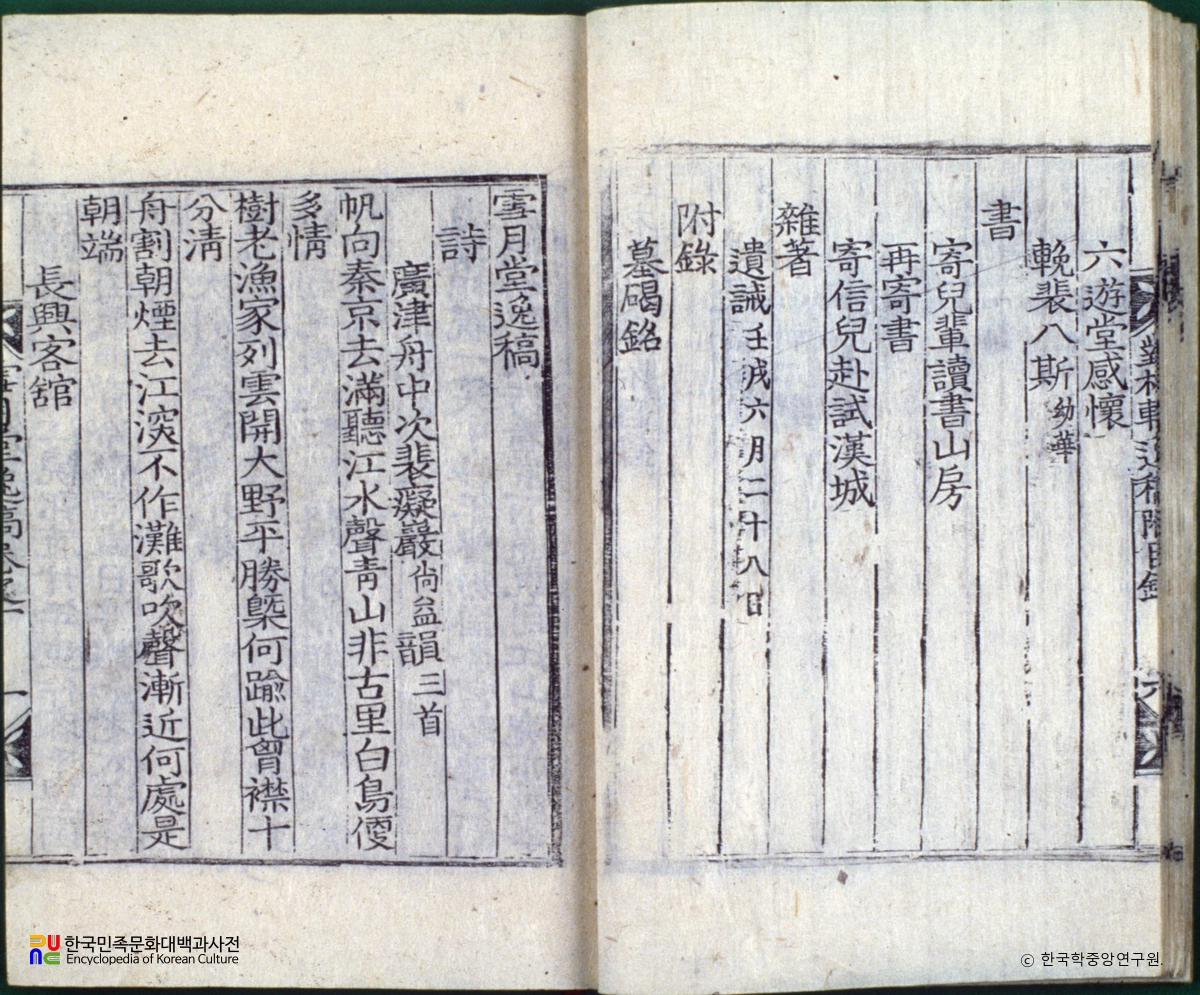 六遊堂感懷
輓裴八斯幼華
書
寄兒輩讀書山房
再寄書
寄信兒赴試漢城
雜著
遺誡壬戌六月二十八日
附錄
墓碣銘
雪月堂逸稿
詩
廣津舟中次裴癡巖尙益韻三首
帆向秦京去滿聽江水聲靑山非古里白鳥便
多情
樹老漁家列雲開大野平勝槩何踰此胷襟十
分淸
舟割朝煙去江深不作灘歌吹聲漸近何處是
朝端
長興客舘
한국민족문화대백과사전
Encyclopedia of Korean Culture
ⓒ 한국학중앙연구원